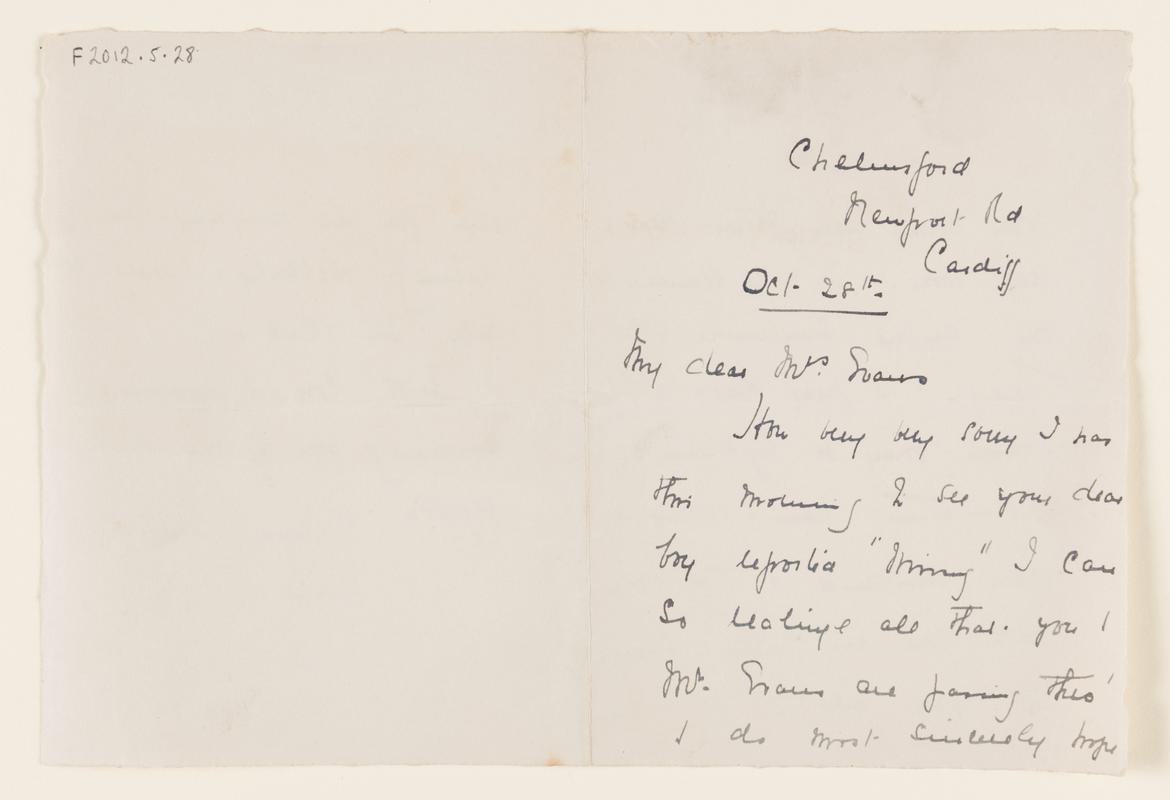 F2012.5.28
Chelmsford
Newport Rd
Cardiff
Oct. 28th.
My dear Mrs. Evans
How very very sorry I was
this morning to see your dear
boy reported "Missing" I can
so realise all that you &
Mr. Evans are passing thro'
I do most sincerely hope